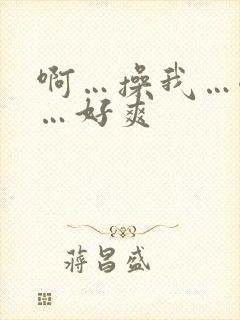 啊…操我…
…好爽
蒋昌盛